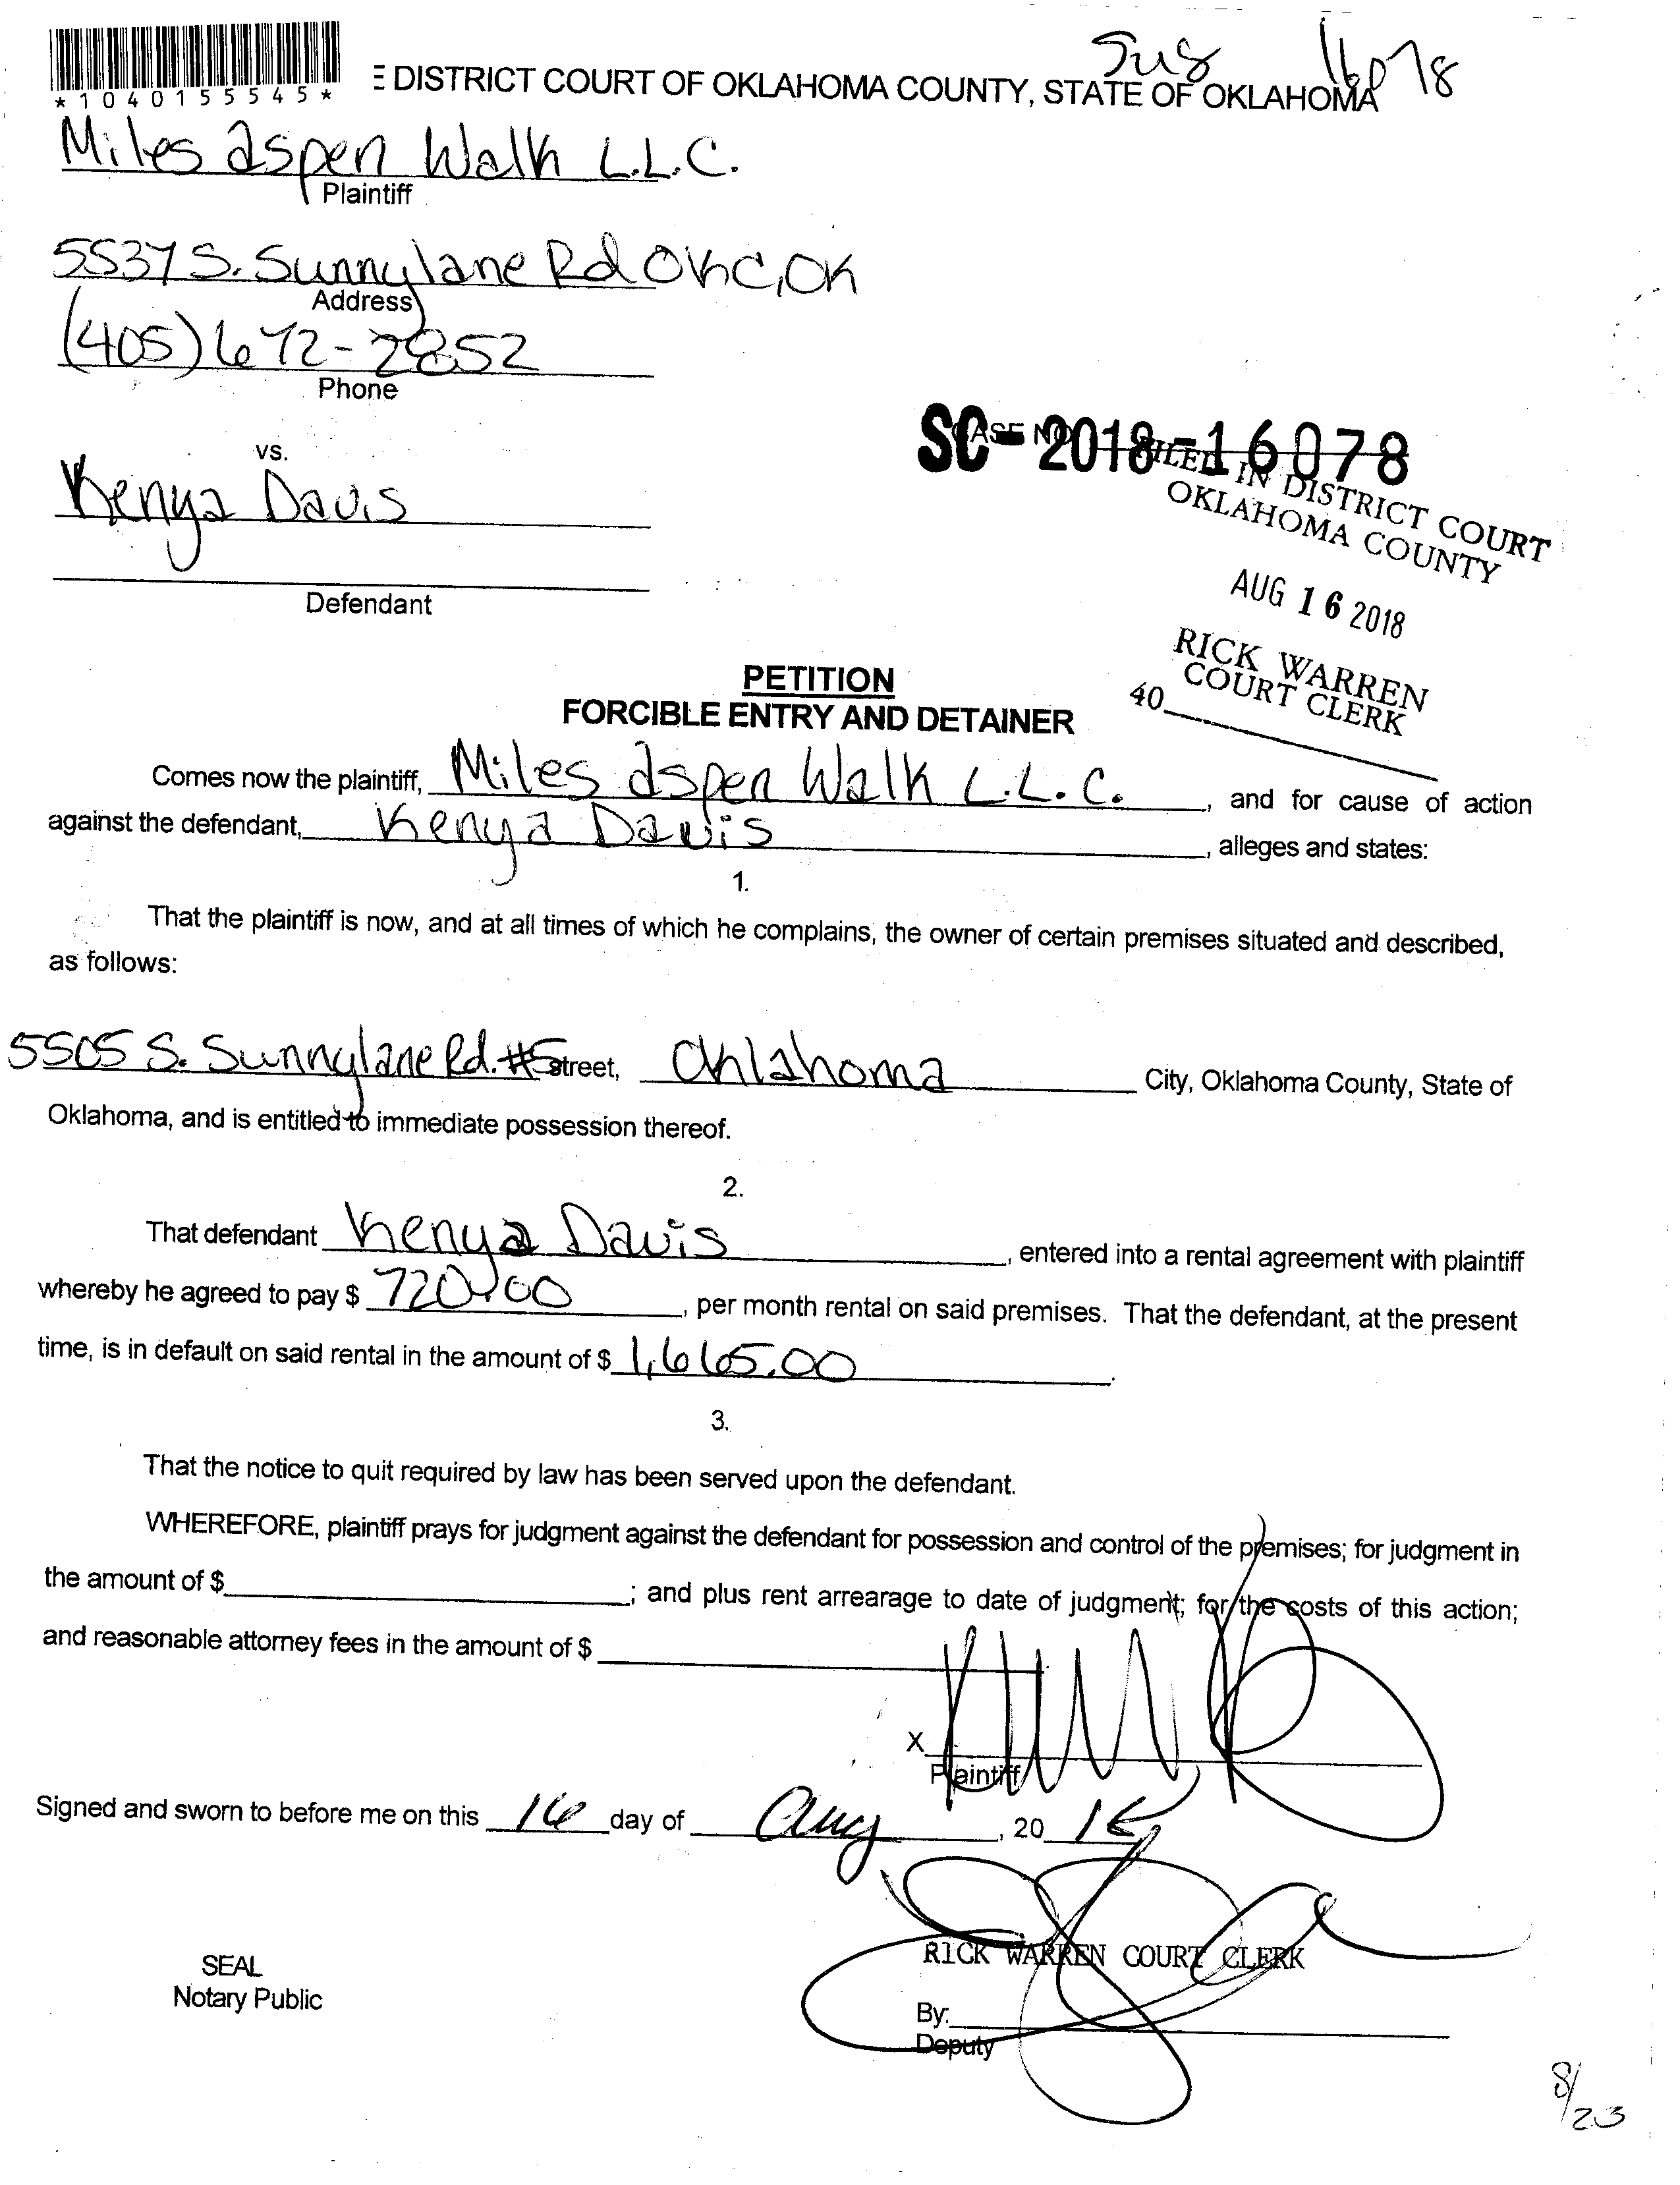 *1040155545*
E DISTRICT COURT OF OKLAHOMA COUNTY, STATE OF OKLAHOMA
16078
Miles aspen Walk L.L.C.
Plaintiff
5537 S. Sunnylane Rd OKC, OK
Address
(405) 672-2852
Phone
SC-2018-16078
CASE NO
vs.
FILED IN DISTRICT COURT
OKLAHOMA COUNTY
Kenya Davis
AUG 16 2018
Defendant
RICK WARREN
COURT CLERK
40
PETITION
FORCIBLE ENTRY AND DETAINER
Comes now the plaintiff, Miles aspen Walk L.L.C. , and for cause of action
against the defendant, Kenya Davis , alleges and states:
1.
That the plaintiff is now, and at all times of which he complains, the owner of certain premises situated and described,
as follows:
5505 S. Sunnylane Rd. #5 street, Oklahoma City, Oklahoma County, State of
Oklahoma, and is entitled to immediate possession thereof.
2.
That defendant Kenya Davis , entered into a rental agreement with plaintiff
whereby he agreed to pay $ 720.00 , per month rental on said premises. That the defendant, at the present
time, is in default on said rental in the amount of $ 1,665.00 .
3.
That the notice to quit required by law has been served upon the defendant.
WHEREFORE, plaintiff prays for judgment against the defendant for possession and control of the premises; for judgment in
the amount of $ ; and plus rent arrearage to date of judgment; for the costs of this action;
and reasonable attorney fees in the amount of $
X
Plaintiff
Signed and sworn to before me on this 16 day of Aug , 20 18
RICK WARREN COURT CLERK
SEAL
Notary Public
By:
Deputy
8/23